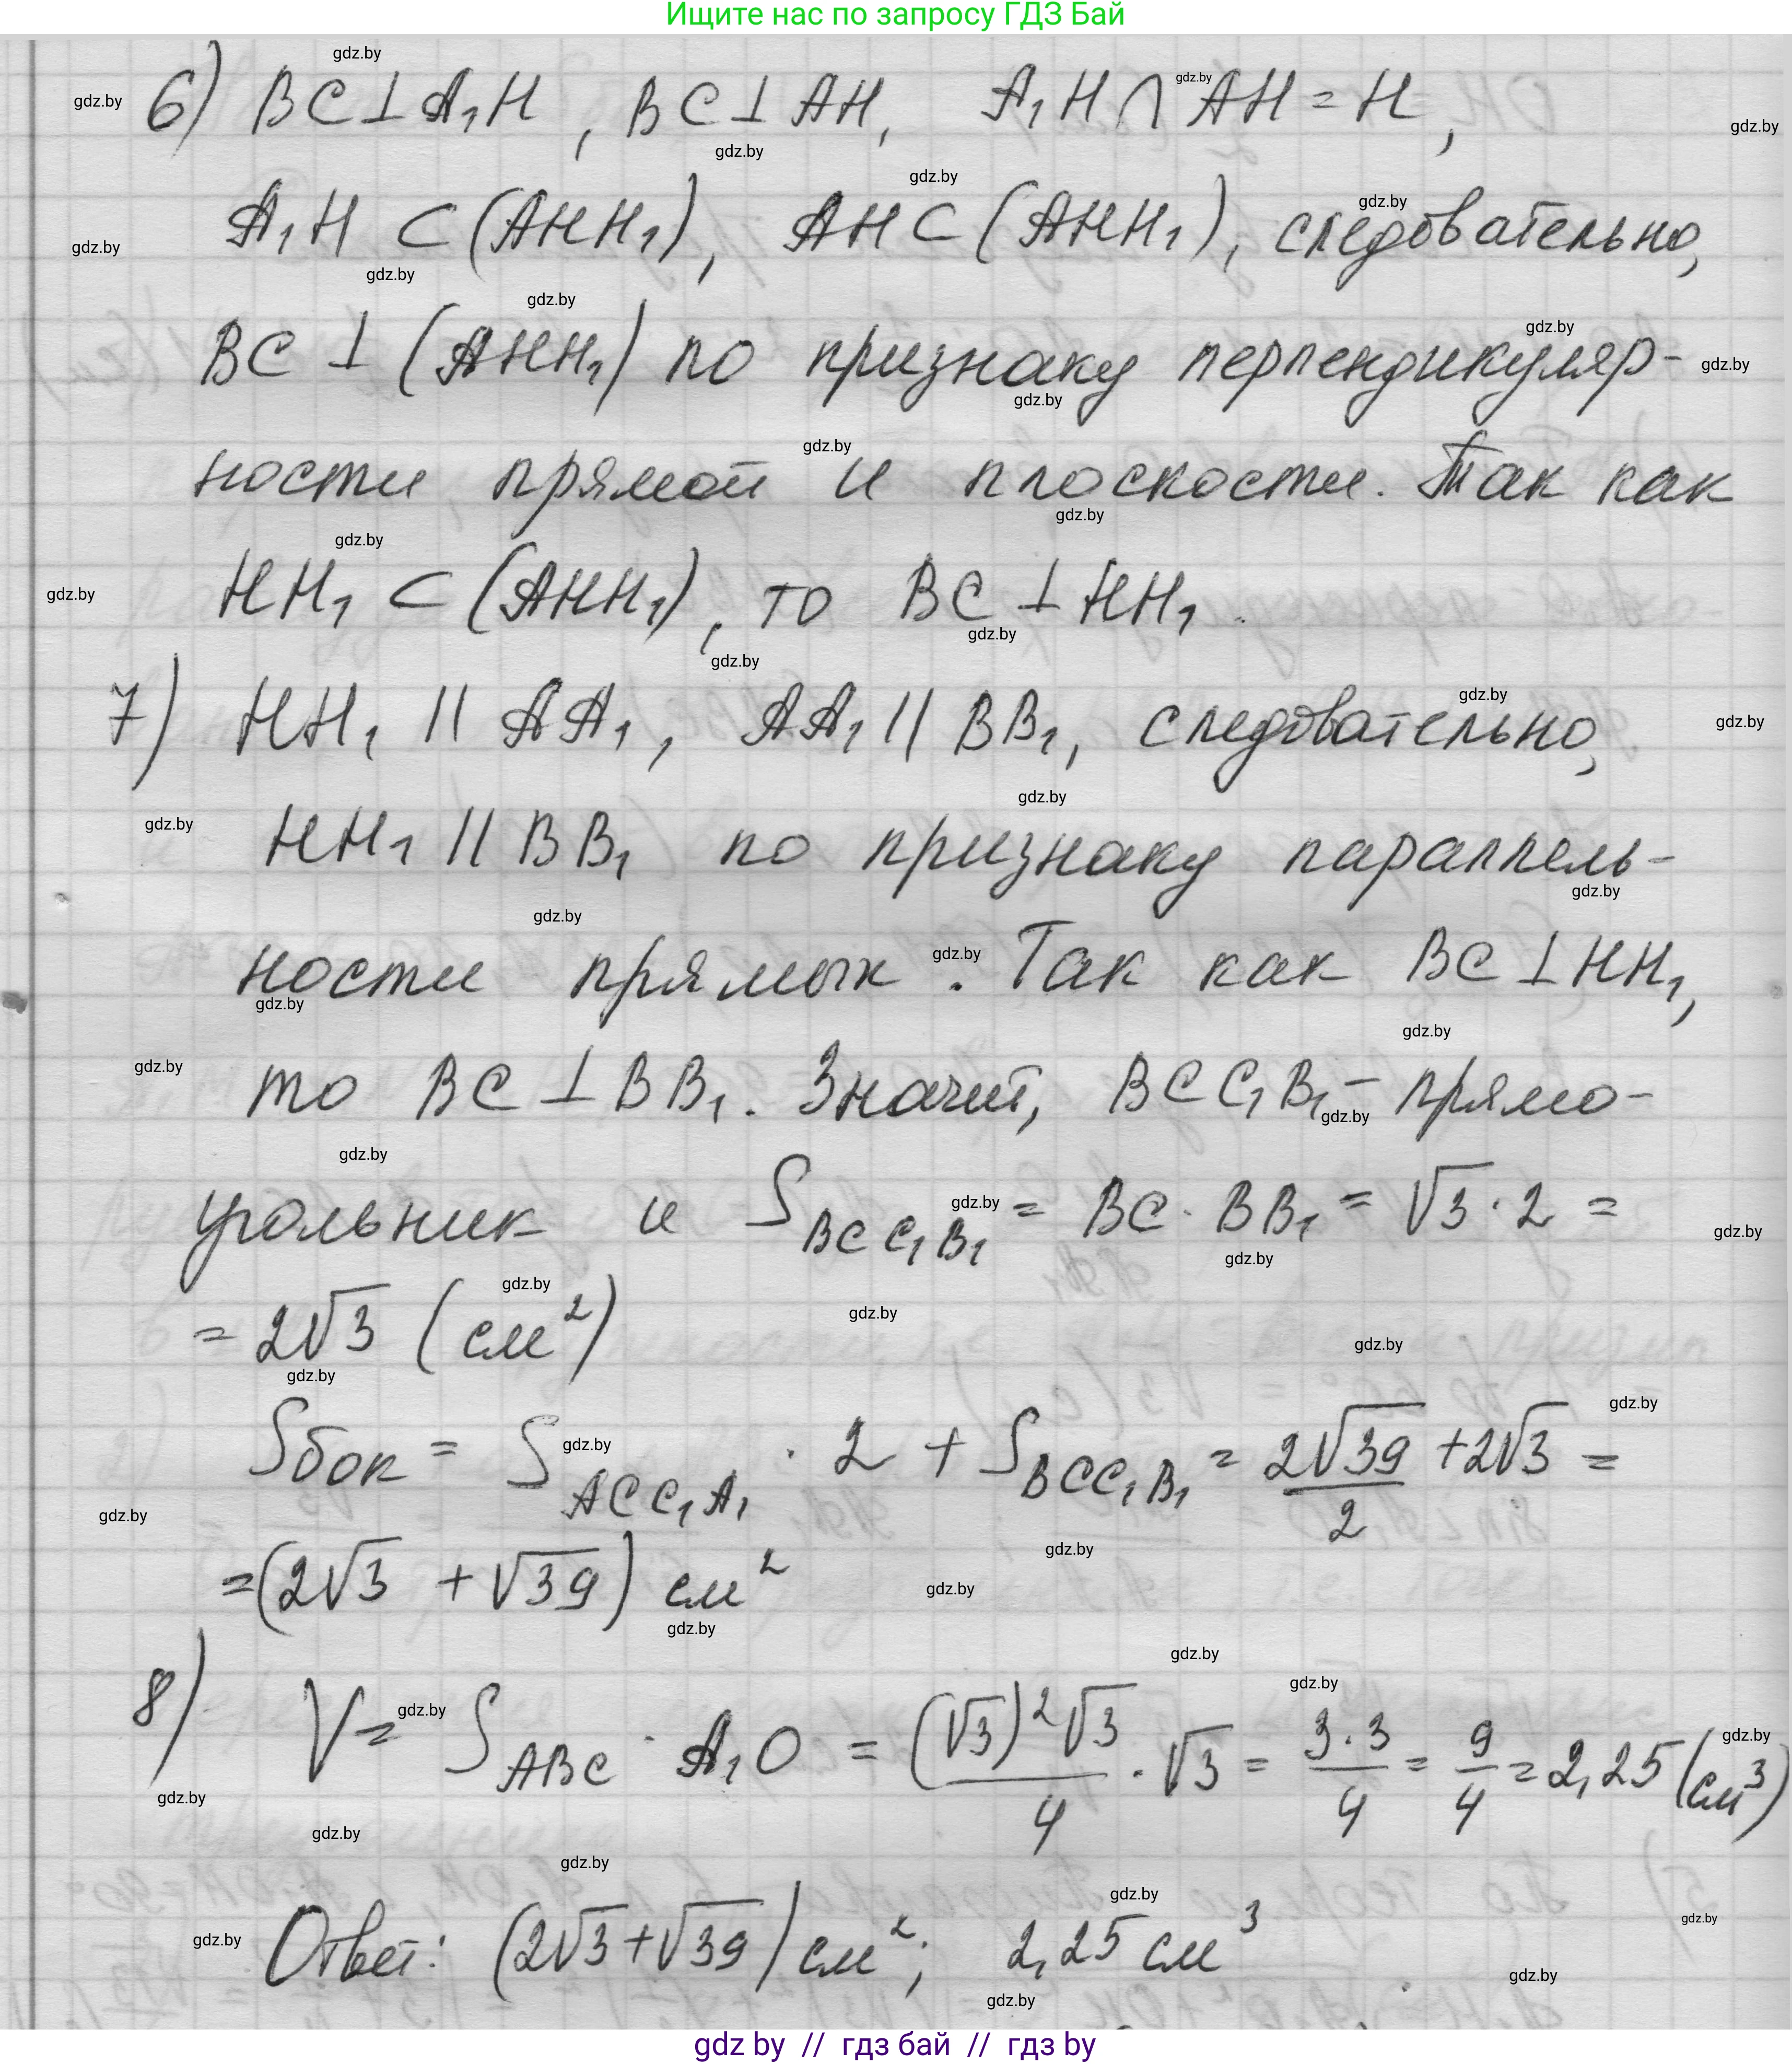 Ищите нас по запросу ГДЗ Бай
6) BC⊥A₁H, BC⊥AH, A₁H∩AH=H,
A₁H⊂(AHH₁), AH⊂(AHH₁), следовательно,
BC⊥(AHH₁) по признаку перпендикуляр-
ности прямой и плоскости. Так как
HH₁⊂(AHH₁), то BC⊥HH₁.
7) HH₁ || AA₁, AA₁ || BB₁, следовательно,
HH₁ || BB₁ по признаку параллель-
ности прямых. Так как BC⊥HH₁,
то BC⊥BB₁. Значит, BCC₁B₁ – прямо-
угольник и S_{BCC₁B₁} = BC·BB₁ = √3·2 =
= 2√3 (см²)
Sбок = S_{ACC₁A₁} · 2 + S_{BCC₁B₁} = 2√39/2 + 2√3 =
= (2√3 + √39) см²
8) V = S_{ABC} · A₁O = (√3)²√3/4 · √3 = 3·3/4 = 9/4 = 2,25 (см³)
Ответ: (2√3+√39) см²; 2,25 см³
gdz by // гдз бай // гдз by